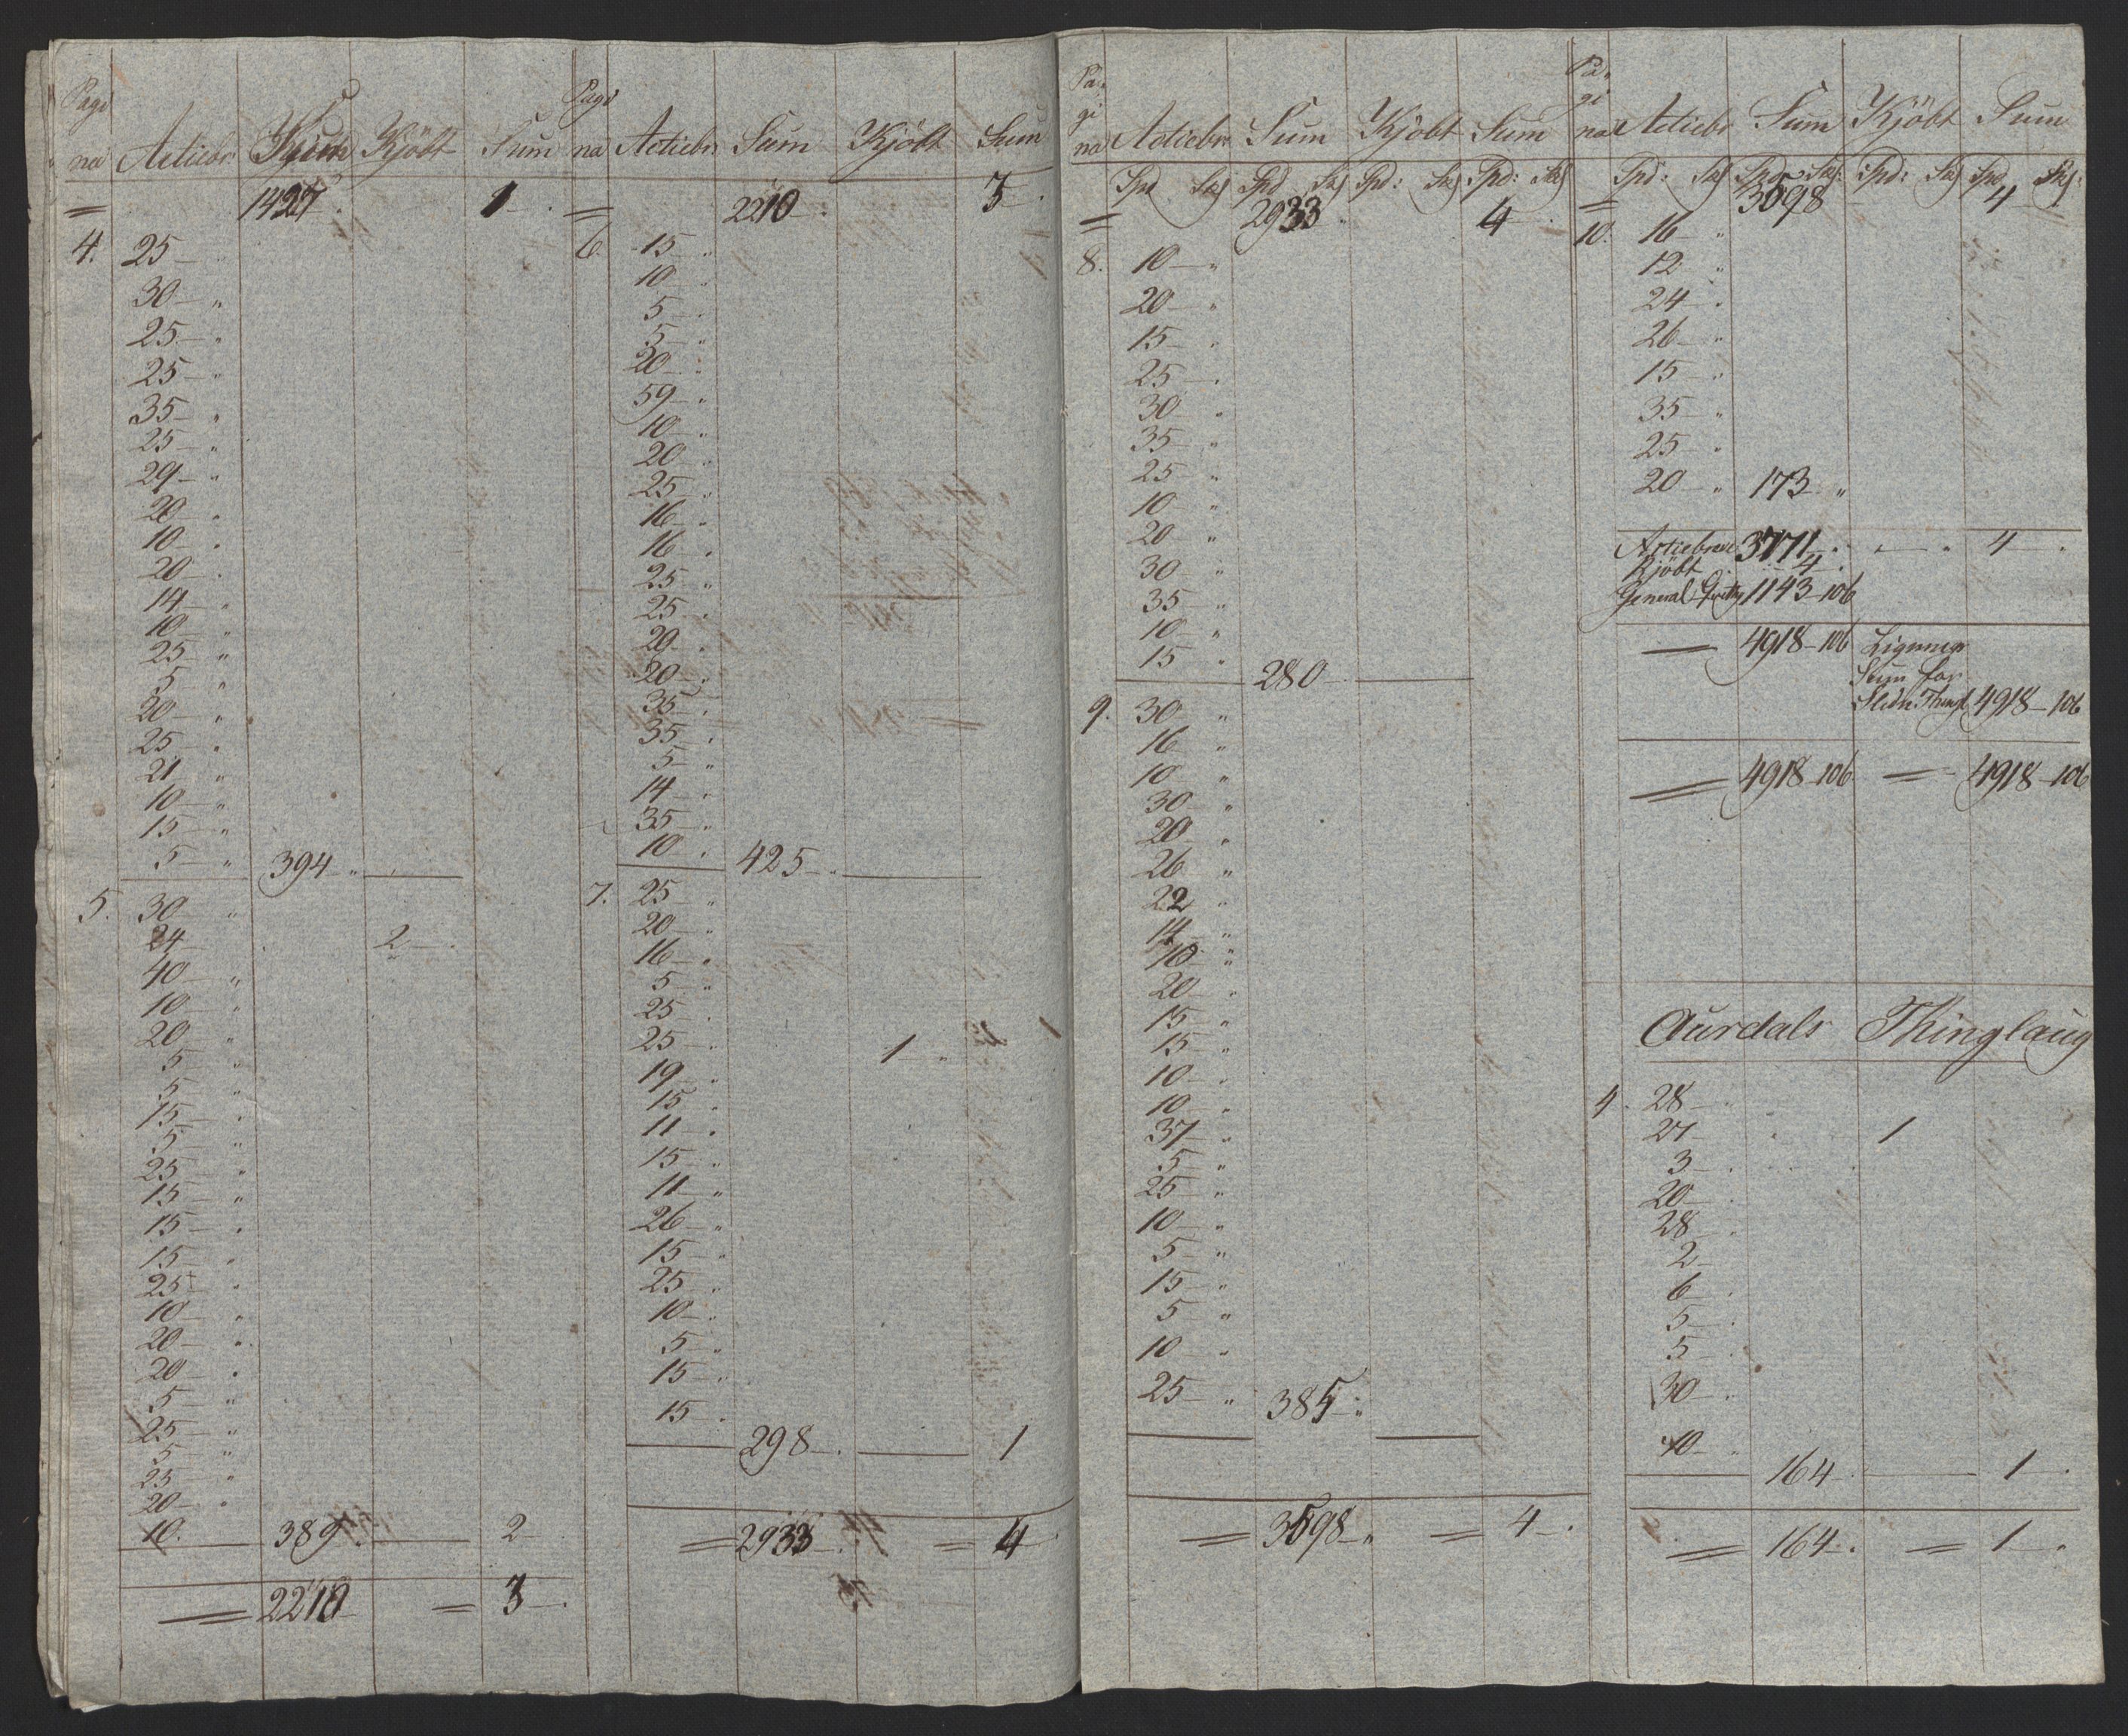 Pagi
na Actiebr. Sum Kjöbt Sum
= 1427 1
4. 25
30 "
25 "
25 "
35 "
25 "
29 "
20 "
10 "
20 "
14 "
10 "
25 "
5 "
20 "
25 "
21 "
10 "
15 "
5 " 394 "
5. 30 "
24 2
40 "
10 "
20 "
5 "
5 "
15 "
5 "
25 "
15 "
15 "
15 "
25 "
10 "
20 "
20 "
5 "
25 "
5 "
25 "
20 "
10. 389 2
= 2210 = 3
Pagi
na Actiebr. Sum Kjöbt Sum
= 2210 3
6. 15 "
10 "
5 "
5 "
20 "
59 "
10 "
20 "
25 "
16 "
16 "
25 "
25 "
20 "
20 "
35 "
35 "
5 "
14 "
35 "
10 " 425 "
7. 25 "
20 "
16 "
5 "
25 "
25 " 1 "
19 "
15 "
11 "
15 "
11 "
26 "
15 "
25 "
10 "
5 "
15 "
15 "
298 1
= 2933 = 4
Pa-
gi
na Actiebr Sum Kjöbt Sum
Spd Skj Spd Skj Spd: Skj Spd: Skj
= 2933 4
8. 10 "
20 "
15 "
25 "
30 "
35 "
25 "
10 "
20 "
30 "
35 "
10 "
15 " 280
9. 30 "
16 "
10 "
30 "
20 "
26 "
22 "
14 "
10 "
20 "
15 "
15 "
10 "
10 "
37 "
5 "
25 "
10 "
5 "
15 "
5 "
10 "
25 " 385 "
= 3598 " = 4
Pa-
gi
na Actiebr Sum Kjöbt Sum
Spd: Skj Spd Skj: Spd: Skj Spd Skj:
= 3598 4
10. 16 "
12 "
24 "
26 "
15 "
35 "
25 "
20 " 173 "
Actiebreve 3771 " " 4
Kjöbt 4
General 1143-106
= 4918-106 Lignings
Sum for
Thingl 4918-106
= 4918-106 = 4918-106
Aurdals Thinglaug
4. 28
27 1
3
20
28
2
6
5
5
30
10
164 1
= 164 = 1